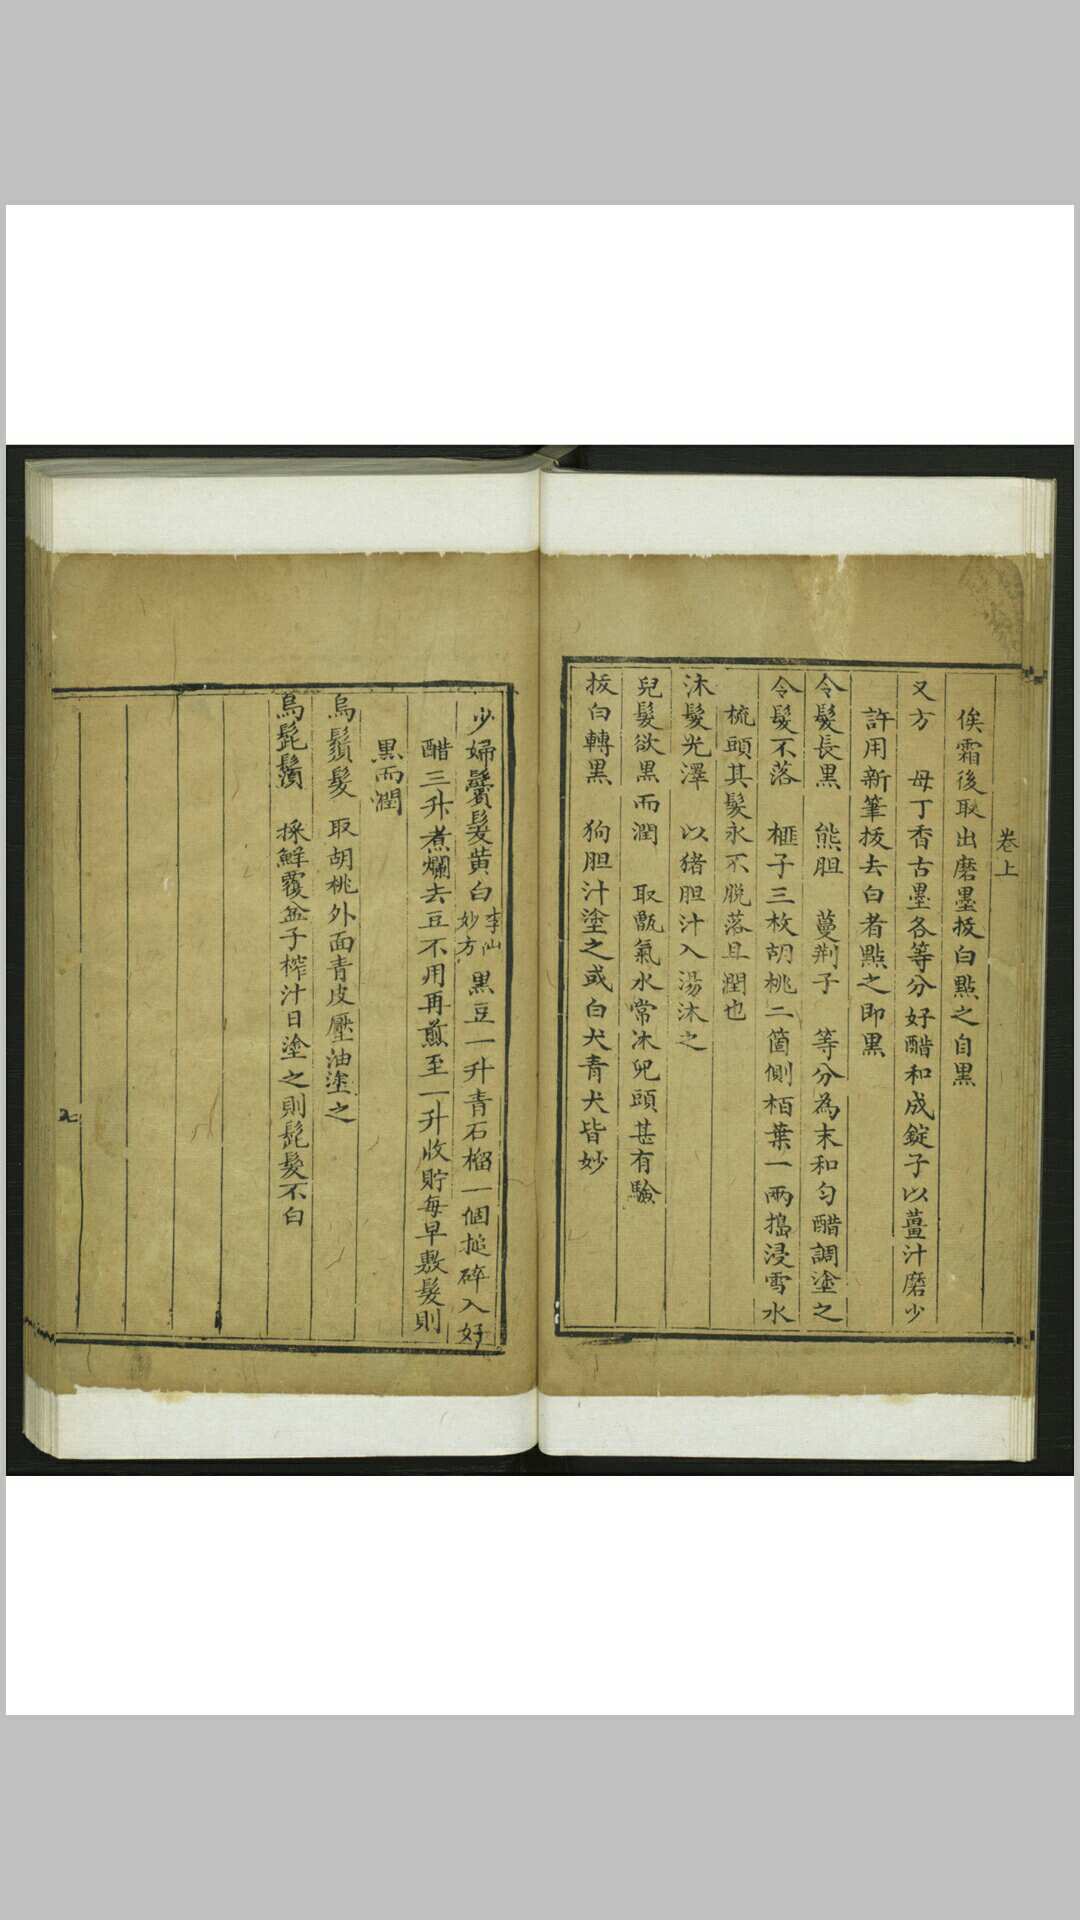 卷上
俟霜後取出磨墨拔白點之自黑
又方 母丁香古墨各等分好醋和成錠子以薑汁磨少
許用新筆拔去白者點之即黑
令髮長黑 熊胆 蔓荆子 等分為末和勻醋調塗之
令髮不落 榧子三枚胡桃二箇側栢葉一兩搗浸雪水
梳頭其髮永不脱落且潤也
沐髮光澤 以猪胆汁入湯沐之
兒髮欲黒而潤 取甑氣水常沐兒頭甚有驗
拔白轉黑 狗胆汁塗之或白犬青犬皆妙
少婦鬢髮黄白 李仙妙方 黒豆一升青石榴一個搥碎入好
醋三升煮爛去豆不用再煎至一升收貯每早敷髮則
黒而潤
烏鬚髮 取胡桃外面青皮壓油塗之
烏髭鬚 採鮮覆盆子榨汁日塗之則髭髮不白